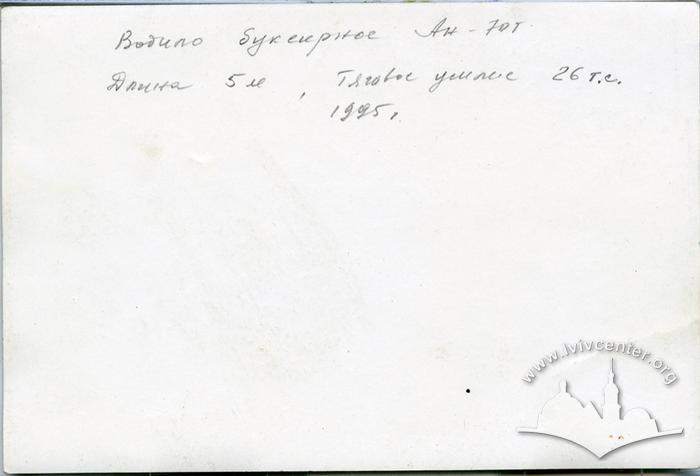 Водило буксирное Ан-70т.
Длина 5 м, Тяговое усилие 26 т.с.
1995 г.
www.lvivcenter.org